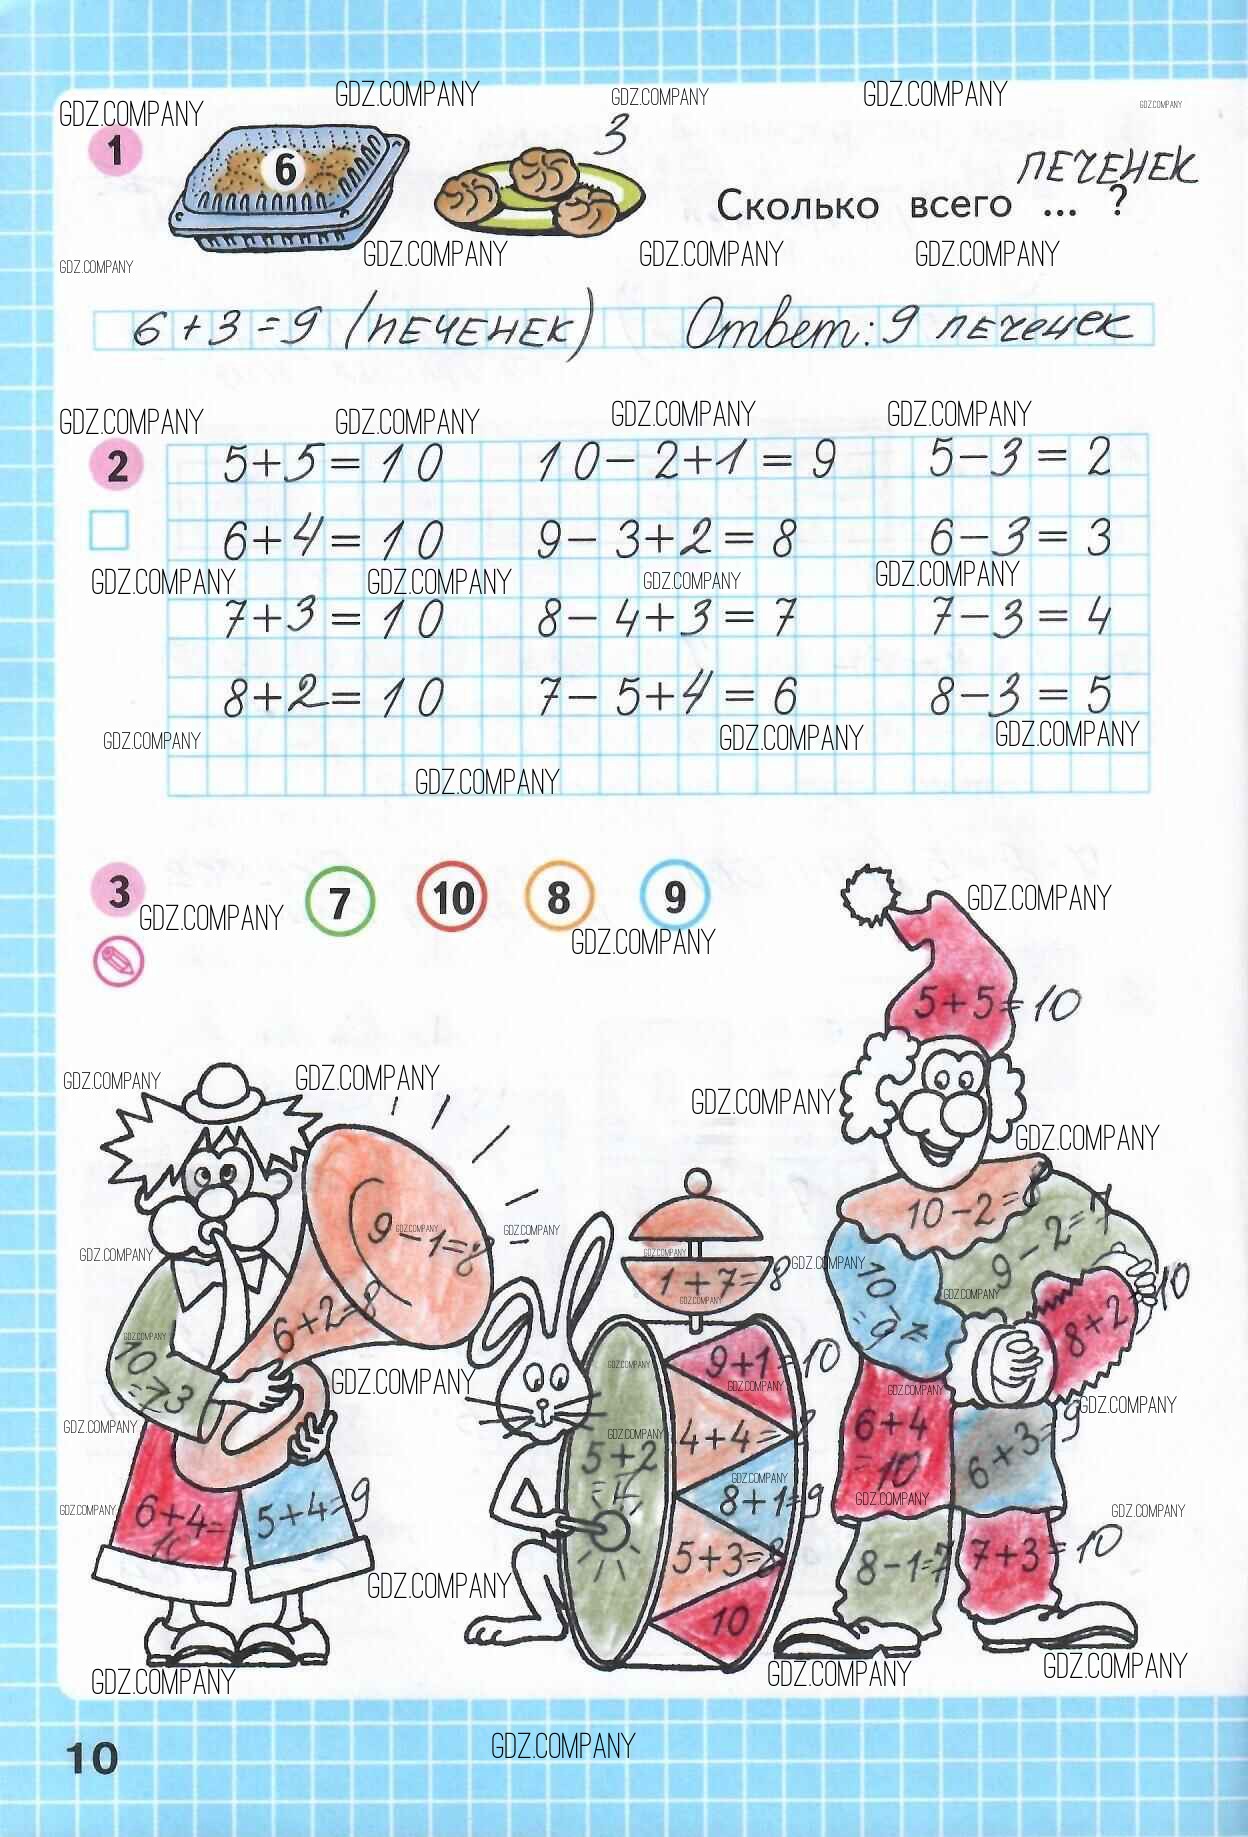 GDZ.COMPANY GDZ.COMPANY GDZ.COMPANY GDZ.COMPANY GDZ.COMPANY
1 6 3
печенек
Сколько всего ... ?
GDZ.COMPANY GDZ.COMPANY GDZ.COMPANY GDZ.COMPANY
6+3=9 (печенек) Ответ: 9 печенек
GDZ.COMPANY GDZ.COMPANY GDZ.COMPANY GDZ.COMPANY
2 5+5=10 10-2+1=9 5-3=2
6+4=10 9-3+2=8 6-3=3
GDZ.COMPANY GDZ.COMPANY GDZ.COMPANY GDZ.COMPANY
7+3=10 8-4+3=7 7-3=4
8+2=10 7-5+4=6 8-3=5
GDZ.COMPANY GDZ.COMPANY GDZ.COMPANY
GDZ.COMPANY
3 7 10 8 9
GDZ.COMPANY GDZ.COMPANY GDZ.COMPANY
5+5=10
GDZ.COMPANY GDZ.COMPANY GDZ.COMPANY
GDZ.COMPANY
10-2=8
9-2=7
9-1=8
GDZ.COMPANY GDZ.COMPANY GDZ.COMPANY
GDZ.COMPANY GDZ.COMPANY
1+7=8
GDZ.COMPANY GDZ.COMPANY
6+2=8
8+2 10
GDZ.COMPANY GDZ.COMPANY
9+1=10
GDZ.COMPANY GDZ.COMPANY GDZ.COMPANY GDZ.COMPANY
6+4=10
6+3=9
GDZ.COMPANY GDZ.COMPANY
4+4=8
5+2
GDZ.COMPANY
8+1=9
GDZ.COMPANY GDZ.COMPANY GDZ.COMPANY
6+4=10
5+4=9
5+3=8
8-1=7
7+3=10
GDZ.COMPANY
10
GDZ.COMPANY GDZ.COMPANY GDZ.COMPANY
10
GDZ.COMPANY